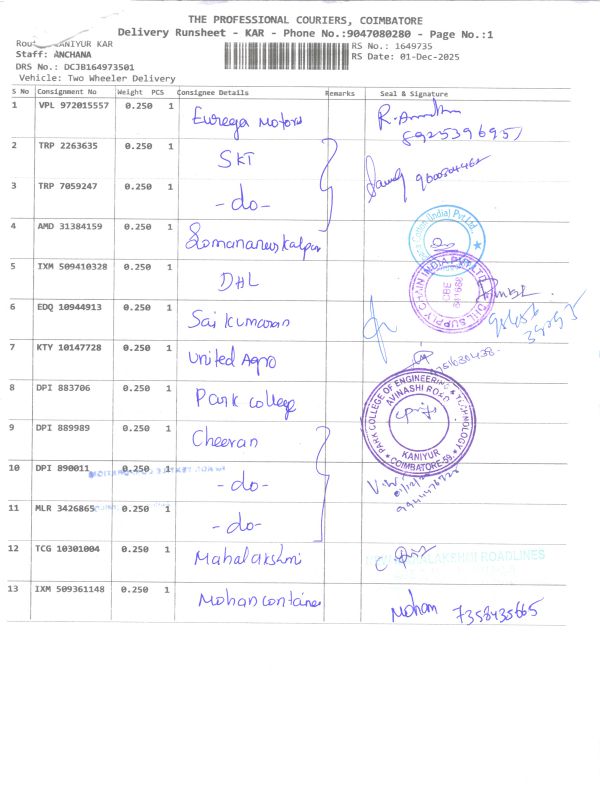 THE PROFESSIONAL COURIERS, COIMBATORE
Delivery Runsheet - KAR - Phone No.:9047080280 - Page No.:1
KANIYUR KAR
RS No.: 1649735
Staff: ANCHANA
RS Date: 01-Dec-2025
DRS No.: DCJB164973501
Vehicle: Two Wheeler Delivery
S No Consignment No Weight PCS Consignee Details Remarks Seal & Signature
1 VPL 972015557 0.250 1 Eurega Motors
8925396951
2 TRP 2263635 0.250 1 SKT
3 TRP 7059247 0.250 1 -do-
4 AMD 31384159 0.250 1
5 IXM 509410328 0.250 1 DHL
SUPPLY CHAIN INDIA PVT LTD
6 EDQ 10944913 0.250 1 Sai Kumaran
7 KTY 10147728 0.250 1 United Agro
8 DPI 883706 0.250 1 Park College
PARK COLLEGE OF ENGINEERING & TECHNOLOGY
AVINASHI ROAD
KANIYUR
COIMBATORE-59.
9 DPI 889989 0.250 1 Cheeran
10 DPI 890011 0.250 1 -do-
11 MLR 3426865 0.250 1 -do-
12 TCG 10301004 0.250 1 Mahalakshmi
MAHALAKSHMI ROADLINES
13 IXM 509361148 0.250 1 Mohan container
Mohan 7358435665